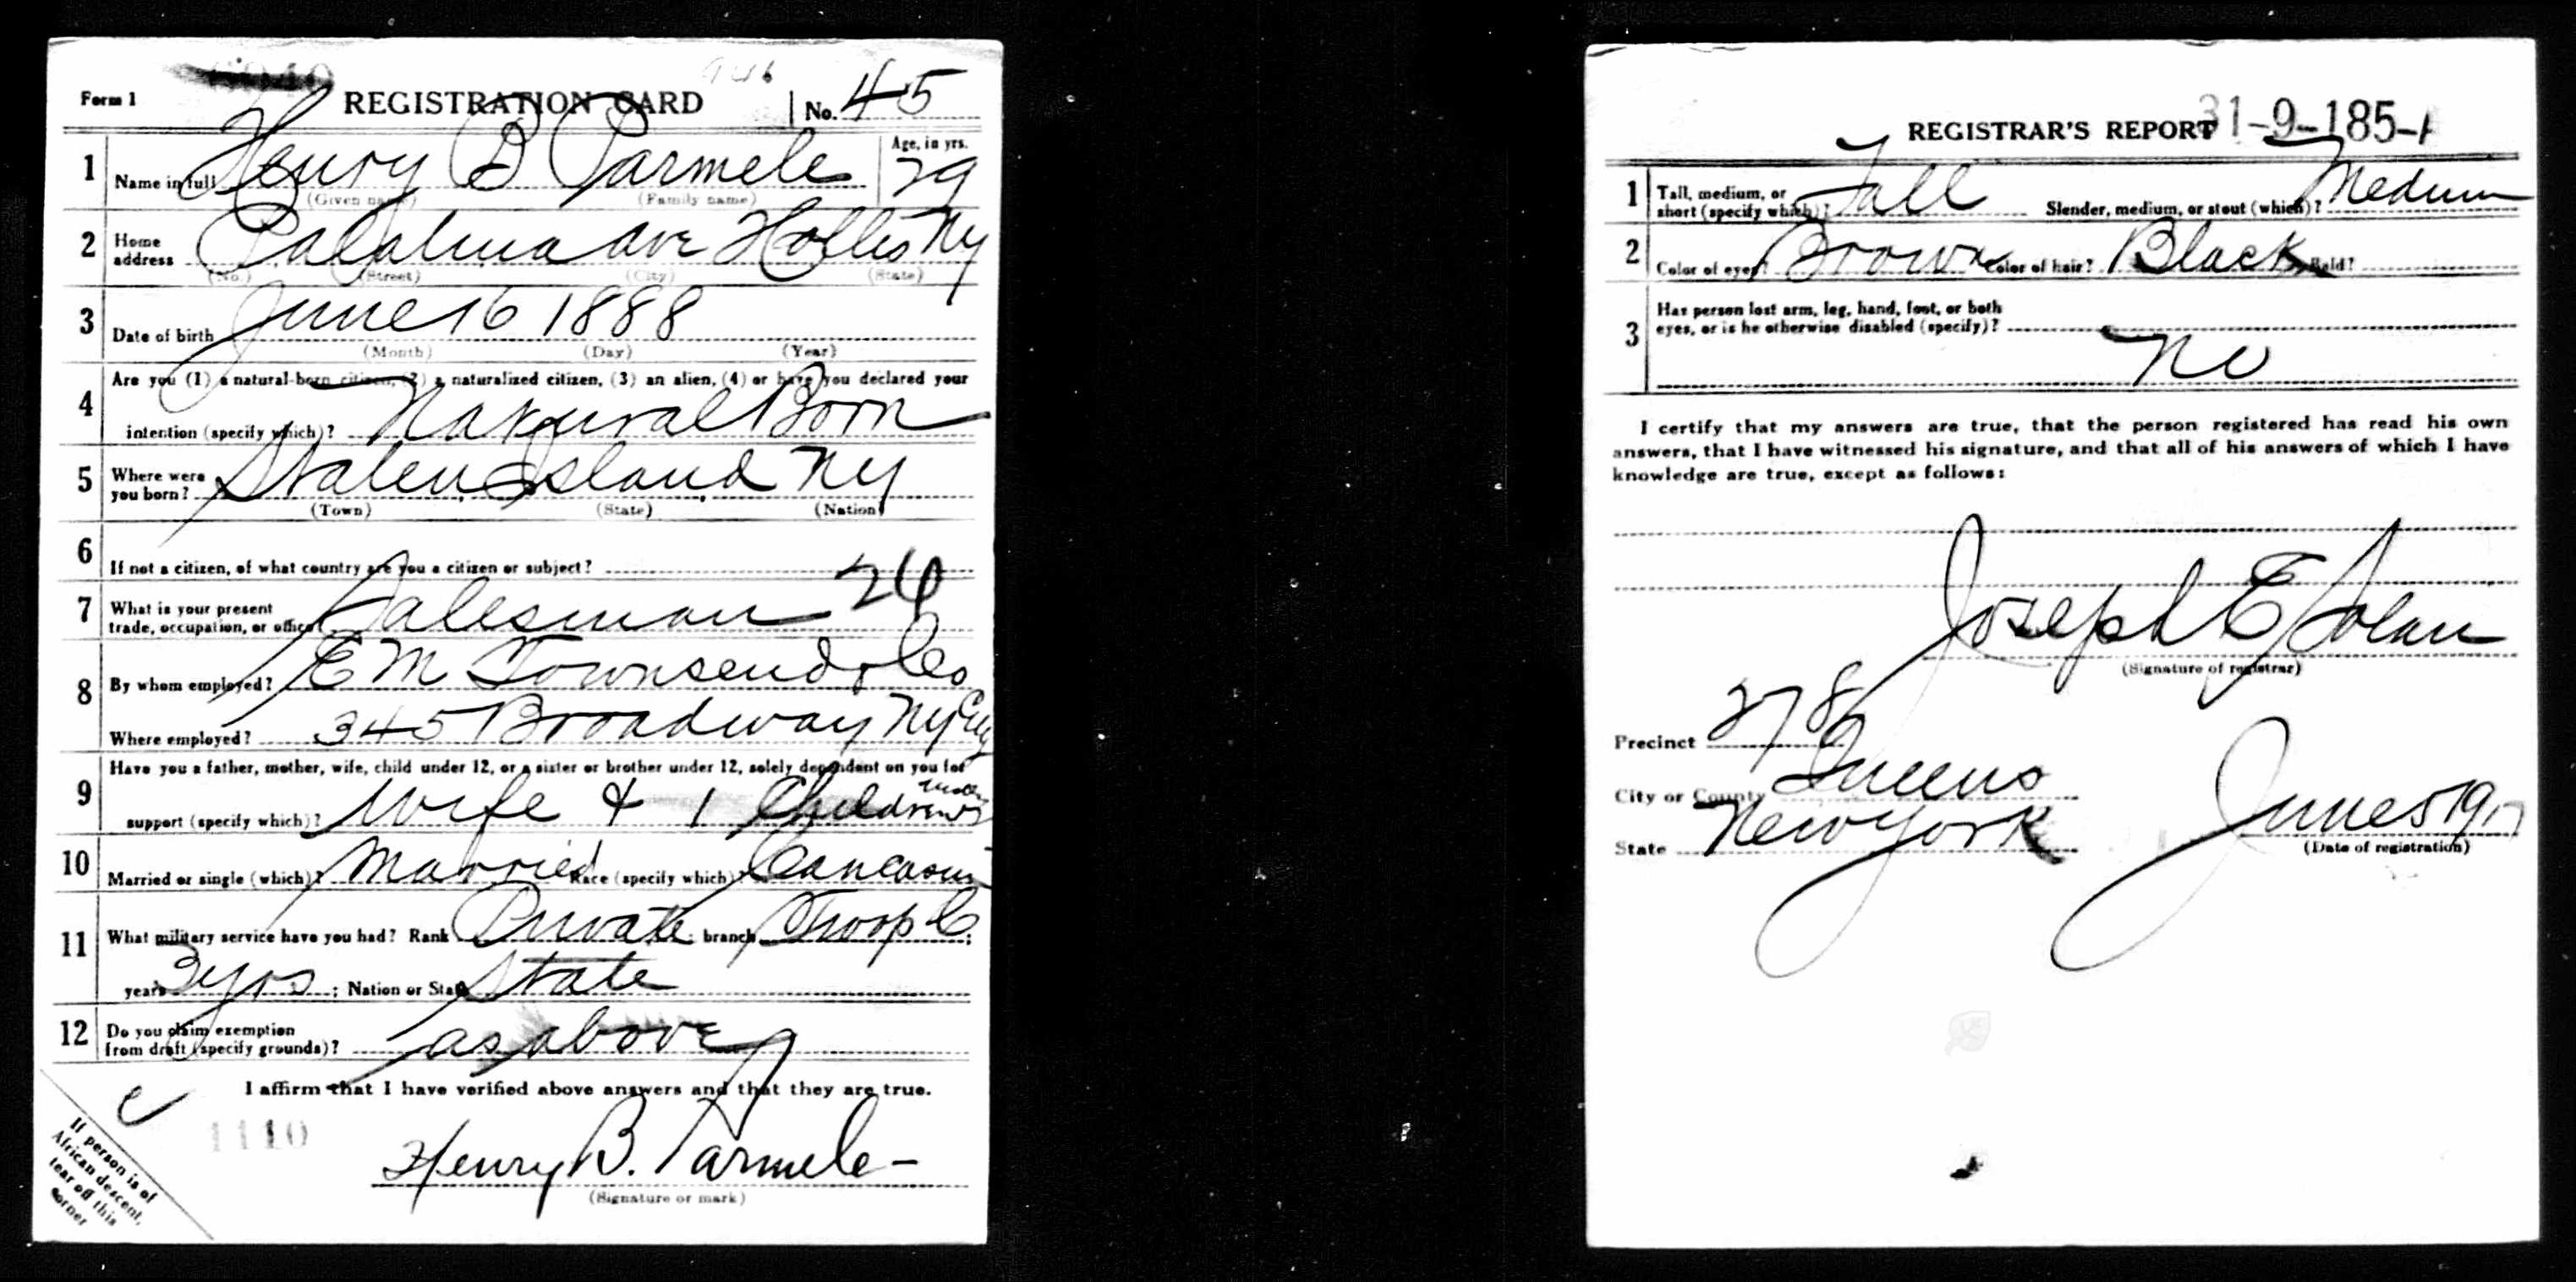 Form 1 REGISTRATION CARD No. 45
1 Name in full Henry B Parmele Age, in yrs. 29
(Given name) (Family name)
2 Home address Palatina Ave Hollis NY
(No.) (Street) (City) (State)
3 Date of birth June 16 1888
(Month) (Day) (Year)
4 Are you (1) a natural-born citizen, (2) a naturalized citizen, (3) an alien, (4) or have you declared your
intention (specify which)? Natural Born
5 Where were you born? Staten Island NY
(Town) (State) (Nation)
6 If not a citizen, of what country are you a citizen or subject?
7 What is your present trade, occupation, or office? Salesman 26
8 By whom employed? E M Townsend & Co
Where employed? 345 Broadway NY City
9 Have you a father, mother, wife, child under 12, or a sister or brother under 12, solely dependent on you for
support (specify which)? Wife & 1 Children
10 Married or single (which)? Married Race (specify which)? Caucasian
11 What military service have you had? Rank Private branch Troop C;
years 3 yrs; Nation or State State
12 Do you claim exemption from draft (specify grounds)? as above
I affirm that I have verified above answers and that they are true.
1110
Henry B. Parmele
(Signature or mark)
If person is of
African descent,
tear off this
corner
REGISTRAR'S REPORT 31-9-185-A
1 Tall, medium, or short (specify which)? Tall Slender, medium, or stout (which)? Medium
2 Color of eyes? Brown Color of hair? Black Bald?
3 Has person lost arm, leg, hand, foot, or both
eyes, or is he otherwise disabled (specify)?
No
I certify that my answers are true, that the person registered has read his own
answers, that I have witnessed his signature, and that all of his answers of which I have
knowledge are true, except as follows:
Joseph E Nolan
(Signature of registrar)
Precinct 278
City or County Queens
State New York June 5 1917
(Date of registration)